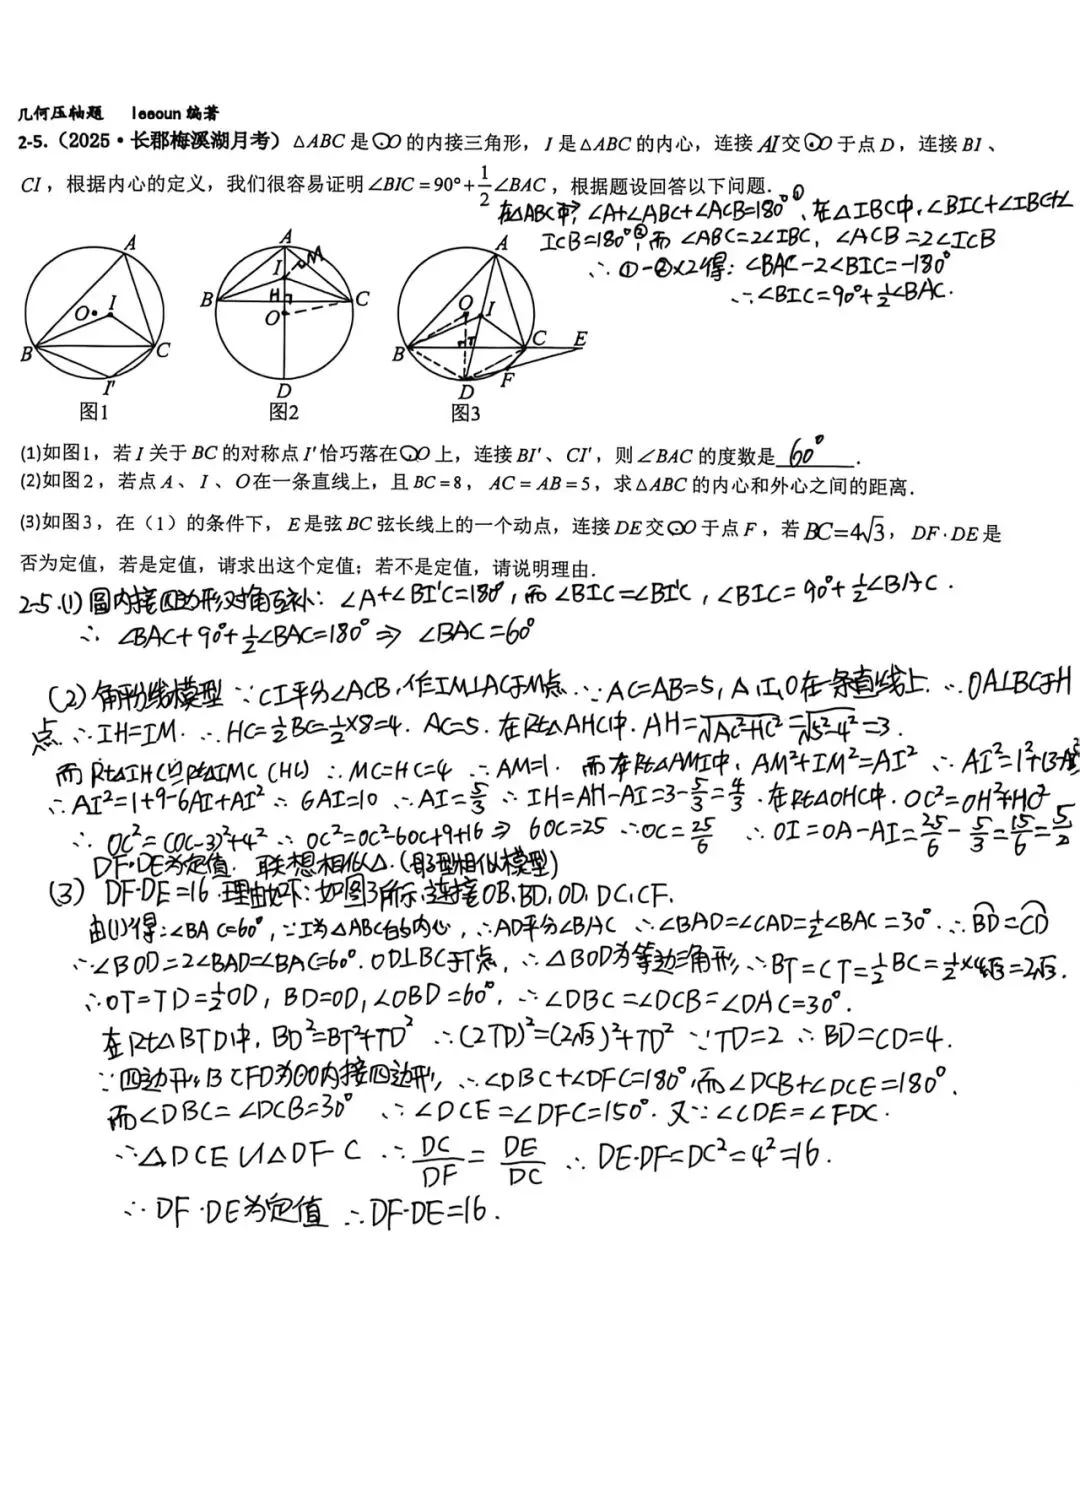 几何压轴题 leeoun 编著
2-5.（2025·长郡梅溪湖月考）△ABC 是⊙O 的内接三角形，I 是△ABC 的内心，连接 AI 交⊙O 于点 D，连接 BI、
CI，根据内心的定义，我们很容易证明∠BIC=90°+1/2∠BAC，根据题设回答以下问题.
在△ABC中，∠A+∠ABC+∠ACB=180°①、在△IBC中，∠BIC+∠IBC+∠
ICB=180°②，而∠ABC=2∠IBC，∠ACB=2∠ICB
∴①-②×2得：∠BAC-2∠BIC=-180°
∴∠BIC=90°+1/2∠BAC.
A O I B C I'
图1
A M I B H C O D
图2
A O I B T C E F D
图3
(1)如图1，若 I 关于 BC 的对称点 I'恰巧落在⊙O 上，连接 BI'、CI'，则∠BAC 的度数是 60°.
(2)如图2，若点 A、I、O 在一条直线上，且 BC=8，AC=AB=5，求△ABC 的内心和外心之间的距离.
(3)如图3，在（1）的条件下，E 是弦 BC 弦长线上的一个动点，连接 DE 交⊙O 于点 F，若 BC=4√3，DF·DE 是
否为定值，若是定值，请求出这个定值；若不是定值，请说明理由.
2-5.(1)圆内接四边形对角互补：∠A+∠BI'C=180°，而∠BIC=∠BI'C，∠BIC=90°+1/2∠BAC.
∴∠BAC+90°+1/2∠BAC=180°⇒∠BAC=60°
(2)角平分线模型∵CI平分∠ACB，作IM⊥AC于M点∵AC=AB=5，A，I，O在一条直线上.∴OA⊥BC于H
点∴IH=IM.∴HC=1/2BC=1/2×8=4.AC=5.在Rt△AHC中.AH=√AC²-HC²=√5²-4²=3.
而Rt△IHC≌Rt△IMC(HL)∴MC=HC=4∴AM=1.而在Rt△AMI中，AM²+IM²=AI²∴AI²=1²+(3-AI)²
∴AI²=1+9-6AI+AI²∴6AI=10∴AI=5/3∴IH=AH-AI=3-5/3=4/3.在Rt△OHC中.OC²=OH²+HC²
∴OC²=(OC-3)²+4²∴OC²=OC²-6OC+9+16⇒6OC=25∴OC=25/6∴OI=OA-AI=25/6-5/3=15/6=5/2
DF·DE为定值.联想相似△.(母子型相似模型)
(3)DF·DE=16.理由如下：如图3所示，连接OB，BD，OD，DC，CF.
由(1)得：∠BAC=60°，∵I为△ABC的内心，∴AD平分∠BAC∴∠BAD=∠CAD=1/2∠BAC=30°.∴BD=CD
∴∠BOD=2∠BAD=∠BAC=60°.OD⊥BC于T点，∴△BOD为等边三角形，∴BT=CT=1/2BC=1/2×4√3=2√3.
∴OT=TD=1/2OD，BD=OD，∠OBD=60°，∴∠DBC=∠DCB=∠DAC=30°.
在Rt△BTD中，BD²=BT²+TD²∴(2TD)²=(2√3)²+TD²∵TD=2∴BD=CD=4.
∵四边形BCFD为⊙O内接四边形，∴∠DBC+∠DFC=180°，而∠DCB+∠DCE=180°.
而∠DBC=∠DCB=30°∴∠DCE=∠DFC=150°.又∵∠CDE=∠FDC.
∴△DCE∽△DFC∴DC/DF=DE/DC∴DE·DF=DC²=4²=16.
∴DF·DE为定值∴DF·DE=16.